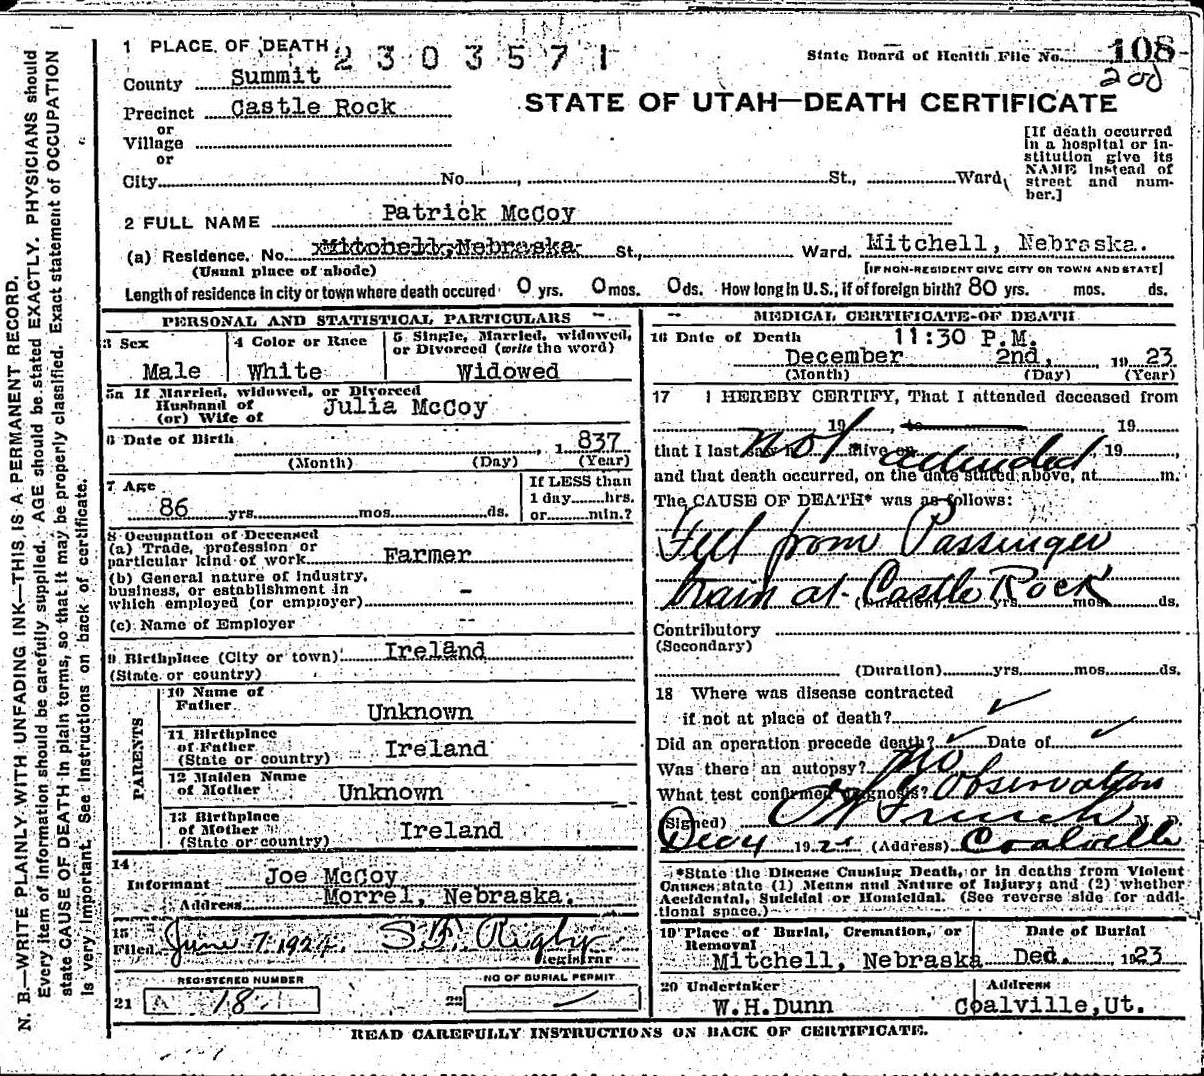 1 PLACE OF DEATH 2303571
State Board of Health File No. 108
200
County Summit
Precinct Castle Rock
STATE OF UTAH—DEATH CERTIFICATE
or
Village
or
City No. , St., Ward,
[If death occurred
in a hospital or in-
stitution give its
NAME instead of
street and num-
ber.]
2 FULL NAME Patrick McCoy
(a) Residence. No. Mitchell, Nebraska St., Ward. Mitchell, Nebraska.
(Usual place of abode) [IF NON-RESIDENT GIVE CITY OR TOWN AND STATE]
Length of residence in city or town where death occured 0 yrs. 0 mos. 0 ds. How long in U.S., if of foreign birth? 80 yrs. mos. ds.
PERSONAL AND STATISTICAL PARTICULARS
3 Sex
Male
4 Color or Race
White
5 Single, Married, widowed,
or Divorced (write the word)
Widowed
5a If Married, widowed, or Divorced
Husband of
(or) Wife of Julia McCoy
6 Date of Birth , 1837
(Month) (Day) (Year)
7 Age
86 yrs. mos. ds.
If LESS than
1 day hrs.
or min.?
8 Occupation of Deceased
(a) Trade, profession or
particular kind of work Farmer
(b) General nature of Industry,
business, or establishment in
which employed (or employer) -
(c) Name of Employer --
9 Birthplace (City or town) Ireland
(State or country)
PARENTS
10 Name of
Father Unknown
11 Birthplace
of Father Ireland
(State or country)
12 Maiden Name
of Mother Unknown
13 Birthplace
of Mother Ireland
(State or country)
14
Informant Joe McCoy
Address Morrel, Nebraska.
15
Filed June 7, 1924 Rigby
Registrar
REGISTERED NUMBER
21 A 18
NO OF BURIAL PERMIT
22 —
MEDICAL CERTIFICATE OF DEATH
16 Date of Death 11:30 P.M.
December 2nd, 1923
(Month) (Day) (Year)
17 I HEREBY CERTIFY, That I attended deceased from
19 , to , 19
that I last saw h alive on , 19
not attended
and that death occurred, on the date stated above, at m.
The CAUSE OF DEATH* was as follows:
Fell from Passinger
train at Castle Rock
(Duration) yrs. mos. ds.
Contributory
(Secondary)
(Duration) yrs. mos. ds.
18 Where was disease contracted
if not at place of death?
Did an operation precede death? Date of
Was there an autopsy? no
What test confirmed diagnosis? Observation
(Signed) French M. D.
192 (Address) Coalville
*State the Disease Causing Death, or in deaths from Violent
Causes state (1) Means and Nature of Injury; and (2) whether
Accidental, Suicidal or Homicidal. (See reverse side for addi-
tional space.)
19 Place of Burial, Cremation, or
Removal
Mitchell, Nebraska
Date of Burial
Dec. 1923
20 Undertaker
W.H.Dunn
Address
Coalville,Ut.
READ CAREFULLY INSTRUCTIONS ON BACK OF CERTIFICATE.
N. B.—WRITE PLAINLY, WITH UNFADING INK—THIS IS A PERMANENT RECORD.
Every item of information should be carefully supplied. AGE should be stated EXACTLY. PHYSICIANS should
state CAUSE OF DEATH in plain terms, so that it may be properly classified. Exact statement of OCCUPATION
is very important. See instructions on back of certificate.